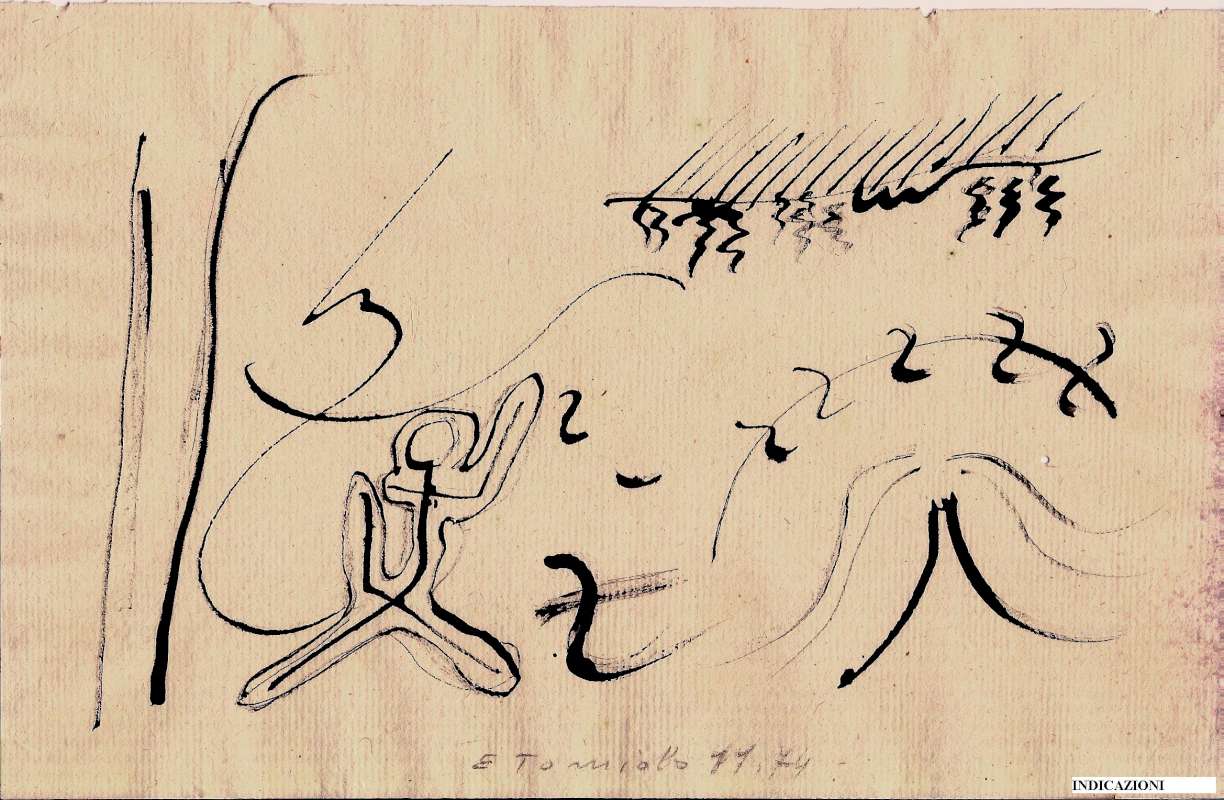 E Tomiolo 11.74
INDICAZIONI